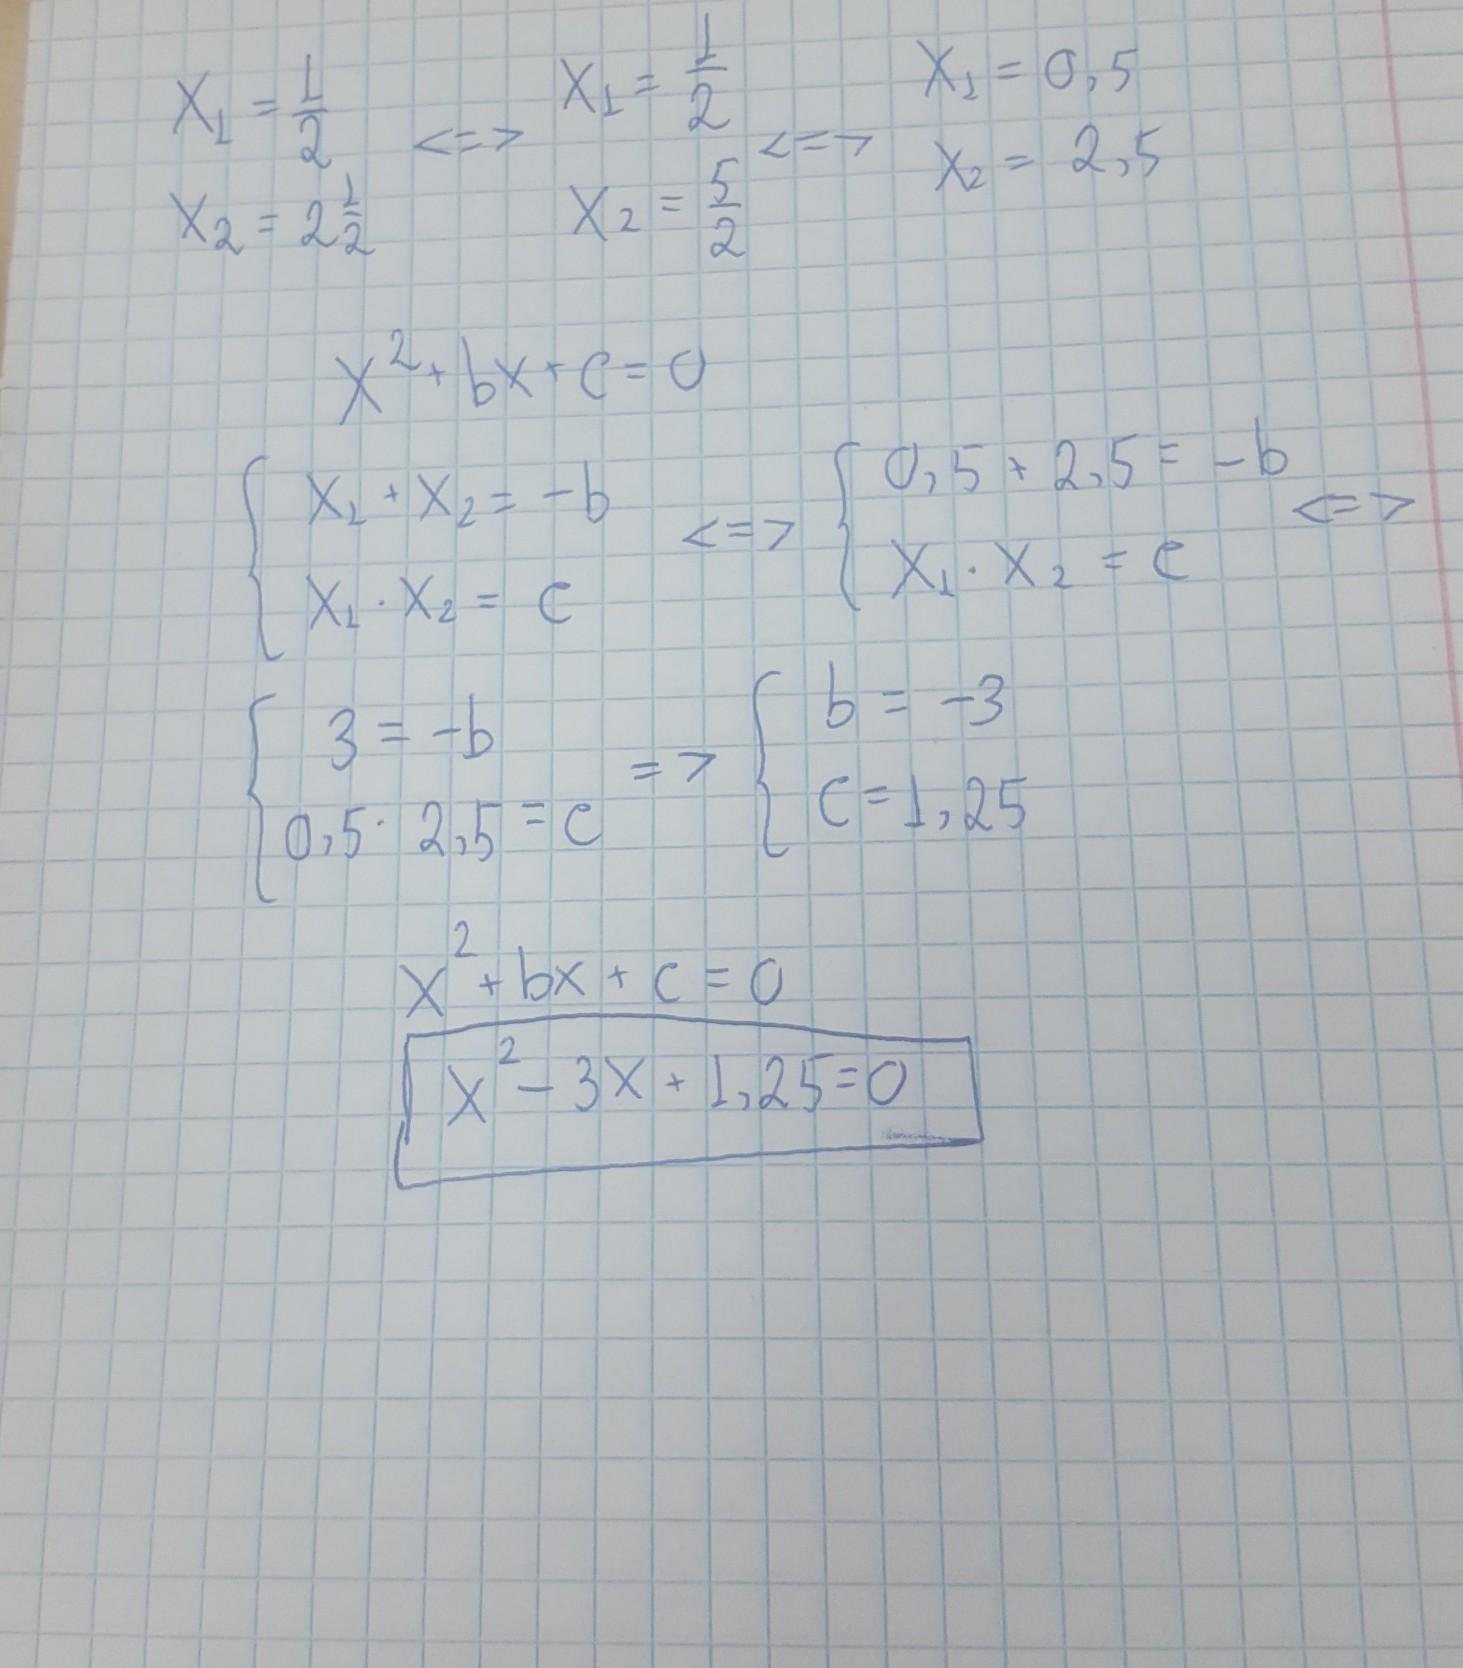 x₁ = 1/2 <=> x₁ = 1/2 <=> x₁ = 0,5
x₂ = 2 1/2 x₂ = 5/2 x₂ = 2,5
x² + bx + c = 0
{ x₁ + x₂ = -b <=> { 0,5 + 2,5 = -b <=>
x₁ · x₂ = c x₁ · x₂ = c
{ 3 = -b => { b = -3
0,5 · 2,5 = c c = 1,25
x² + bx + c = 0
x² - 3x + 1,25 = 0